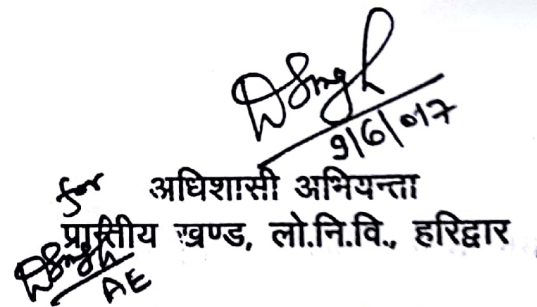 DSingh
9/6/017
for अधिशासी अभियन्ता
प्रान्तीय खण्ड, लो.नि.वि., हरिद्वार
DSingh
AE